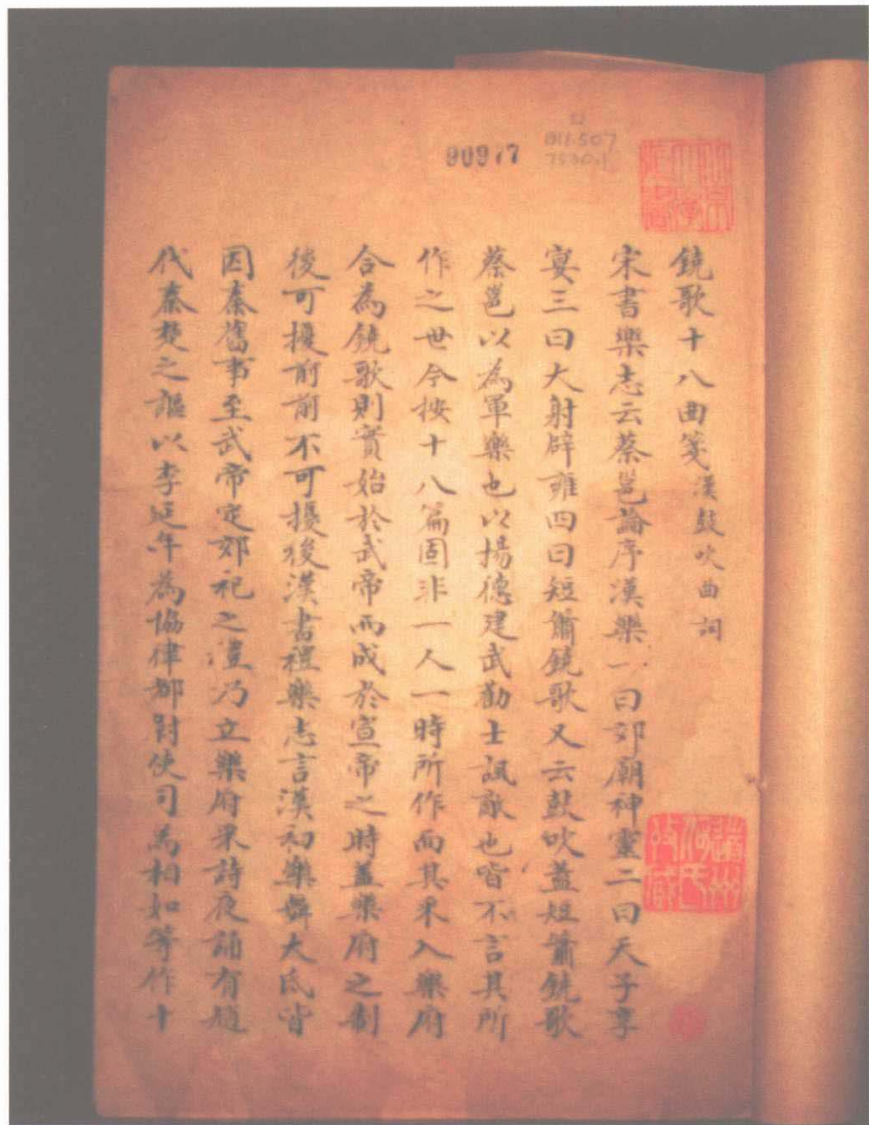 90977
鐃歌十八曲箋 漢鼓吹曲詞
宋書樂志云蔡邕論序漢樂一曰郊廟神靈二曰天子享
宴三曰大射辟雍四曰短簫鐃歌又云鼓吹蓋短簫鐃歌
蔡邕以為軍樂也以揚德建武勸士諷敵也皆不言其所
作之世今按十八篇固非一人一時所作而其采入樂府
合為鐃歌則實始於武帝而成於宣帝之時蓋樂府之制
後可擾前前不可擾後漢書禮樂志言漢初樂舞大氐皆
因秦舊事至武帝定郊祀之禮乃立樂府采詩夜誦有趙
代秦楚之謳以李延年為協律都尉使司馬相如等作十